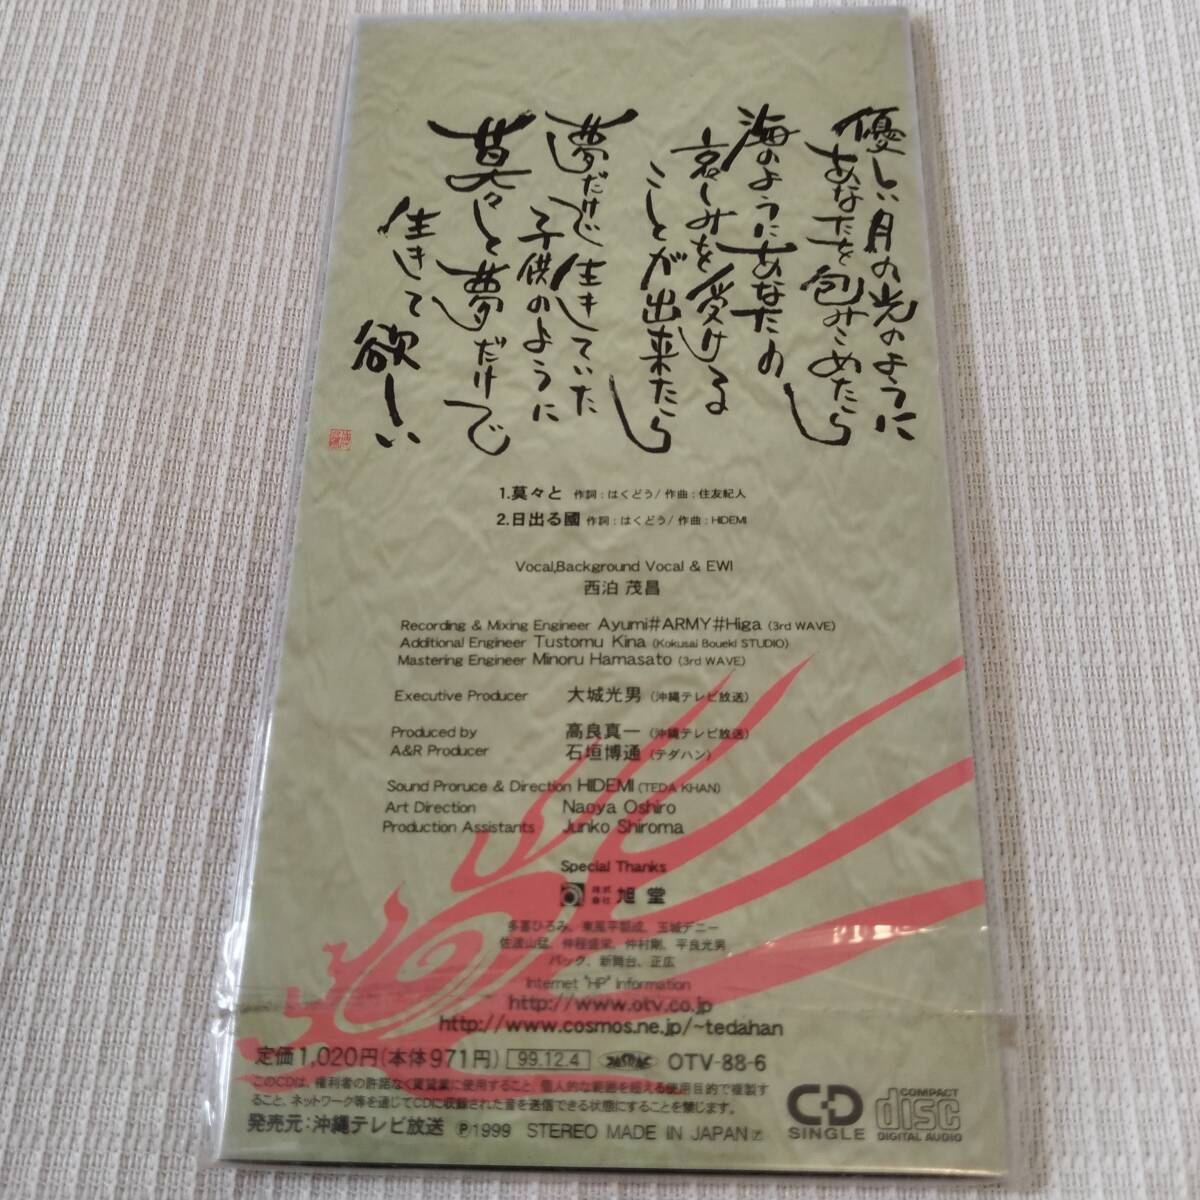 優しい月の光のように
あなたを包みこめたら
海のようにあなたの
哀しみを受ける
ことが出来たら
夢だけで生きていた
子供のように
莫々と夢だけで
生きて欲しい
1.莫々と 作詞:はくどう/作曲:住友紀人
2.日出る國 作詞:はくどう/作曲:HIDEMI
Vocal,Background Vocal & EWI
西泊 茂昌
Recording & Mixing Engineer Ayumi#ARMY#Higa (3rd WAVE)
Additional Engineer Tustomu Kina (Kokusai Boueki STUDIO)
Mastering Engineer Minoru Hamasato (3rd WAVE)
Executive Producer 大城光男 (沖縄テレビ放送)
Produced by 高良真一 (沖縄テレビ放送)
A&R Producer 石垣博通 (テダハン)
Sound Proruce & Direction HIDEMI (TEDA KHAN)
Art Direction Naoya Oshiro
Production Assistants Junko Shiroma
Special Thanks
株式会社 旭堂
多喜ひろみ、東風平朝成、玉城デニー
佐渡山猛、仲程盛栄、仲村剛、平良光男
パック、新舞台、正広
Internet "HP" Information
http://www.otv.co.jp
http://www.cosmos.ne.jp/~tedahan
定価1,020円(本体971円) 99.12.4 JASRAC OTV-88-6
このCDは、権利者の許諾なく賃貸業に使用すること、個人的な範囲を超える使用目的で複製す
ること、ネットワーク等を通じてCDに収録された音を送信できる状態にすることを禁じます。
発売元:沖縄テレビ放送 Ⓟ1999 STEREO MADE IN JAPAN
CD SINGLE
COMPACT disc DIGITAL AUDIO